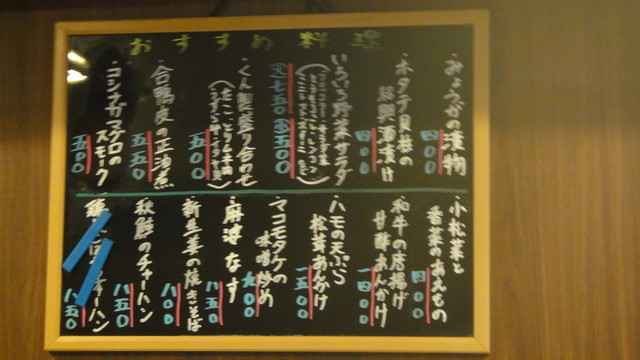 おすすめ料理
・みょうがの漬物
四〇〇
・ホタテ貝柱の
紹興酒漬け
四〇〇
・いろいろ野菜サラダ
七五〇
五〇〇
・くん製盛り合わせ
五〇〇
・合鴨皮の正油煮
五五〇
・コシナガマグロの
スモーク
五五〇
・小松菜と
香菜のあえもの
四〇〇
・和牛の唐揚げ
甘酢あんかけ
一四〇〇
・ハモの天ぷら
松茸あんかけ
一五〇〇
・マコモタケの
味噌炒め
九〇〇
・麻婆なす
八五〇
・新生姜の焼きそば
八〇〇
・秋鮭のチャーハン
八五〇
チャーハン
八五〇